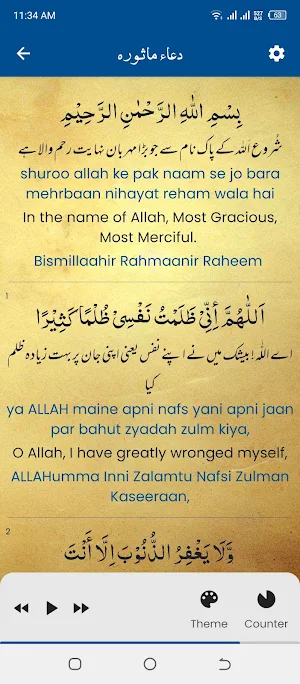 11:34 AM
527 B/s
63
دعاء ماثورہ
بِسْمِ اللّٰهِ الرَّحْمٰنِ الرَّحِيْمِ
شُروع اَللہ کے پاک نام سے جو بڑا مہربان نہایت رحم والا ہے
shuroo allah ke pak naam se jo bara
mehrbaan nihayat reham wala hai
In the name of Allah, Most Gracious,
Most Merciful.
Bismillaahir Rahmaanir Raheem
1
اَللّٰهُمَّ أِنِّىْ ظَلَمْتُ نَفْسِىْ ظُلْمًا كَثِيْرًا
اے اللہ! بیشک میں نے اپنے نفس یعنی اپنی جان پر بہت زیادہ ظلم
کیا
ya ALLAH maine apni nafs yani apni jaan
par bahut zyadah zulm kiya,
O Allah, I have greatly wronged myself,
ALLAHumma Inni Zalamtu Nafsi Zulman
Kaseeraan,
2
وَّلَا يَغْفِرُ الذُّنُوْبَ اِلَّا أَنْتَ
Theme
Counter